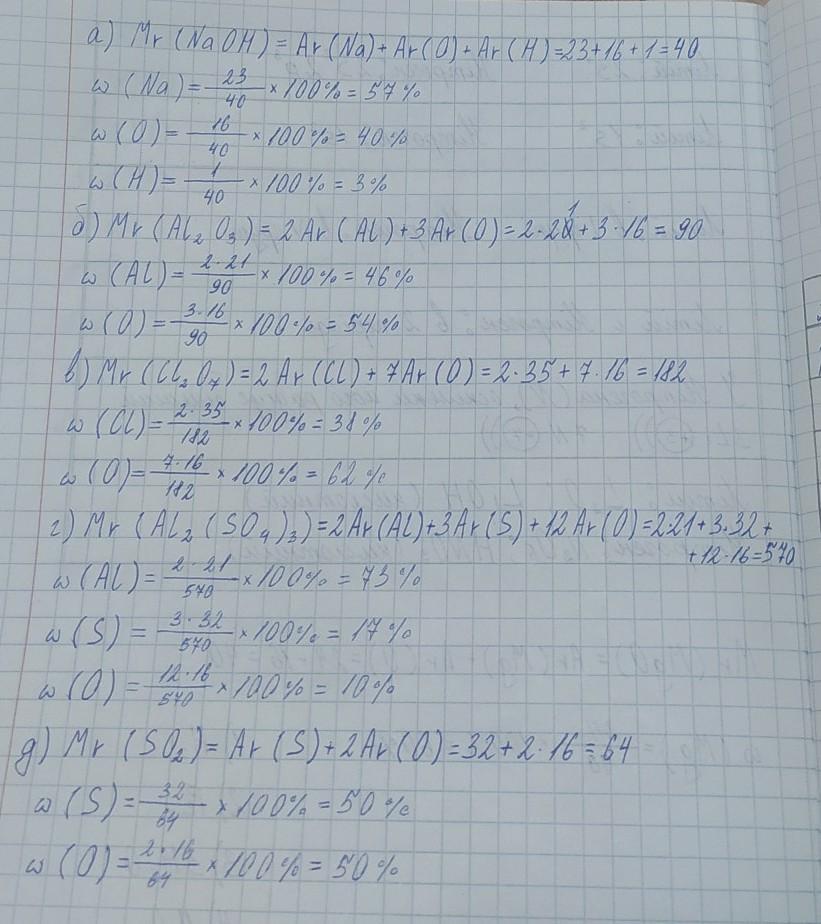 а) Mr (NaOH) = Ar(Na)+Ar(O)+Ar(H)=23+16+1=40
ω (Na)= 23/40 ×100%=57%
ω (O)= 16/40 ×100%=40%
ω (H)= 1/40 ×100%=3%
б) Mr (Al₂O₃)=2Ar(Al)+3Ar(O)=2·21+3·16=90
ω (Al)= 2·21/90 ×100%=46%
ω (O)= 3·16/90 ×100%=54%
в) Mr (Cl₂O₇)=2Ar(Cl)+7Ar(O)=2·35+7·16=182
ω (Cl)= 2·35/182 ×100%=38%
ω (O)= 7·16/182 ×100%=62%
г) Mr (Al₂(SO₄)₃)=2Ar(Al)+3Ar(S)+12Ar(O)=2·21+3·32+
+12·16=570
ω (Al)= 2·21/570 ×100%=73%
ω (S)= 3·32/570 ×100%=17%
ω (O)= 12·16/570 ×100%=10%
д) Mr (SO₂)=Ar(S)+2Ar(O)=32+2·16=64
ω (S)= 32/64 ×100%=50%
ω (O)= 2·16/64 ×100%=50%